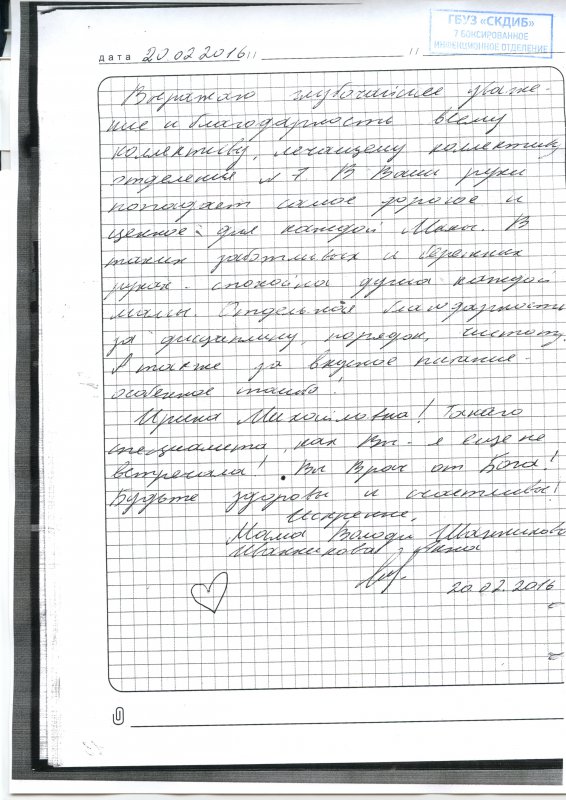 ГБУЗ «СКДИБ»
7 БОКСИРОВАННОЕ
ИНФЕКЦИОННОЕ ОТДЕЛЕНИЕ
дата 20 02 2016
Выражаю глубочайшее уваже-
ние и благодарность всему
коллективу, лечащему коллективу
отделения №7 В Ваши руки
попадает самое дорогое и
ценное для каждой Мамы. В
таких заботливых и бережных
руках - спокойна душа каждой
мамы. Отдельная благодарность
за дисциплину, порядок, чистоту.
А также за вкусное питание -
особенное спасибо!
Ирина Михайловна! Такого
специалиста, как Вы - я еще не
встречала! Вы Врач от Бога!
Будьте здоровы и счастливы!
Искренне,
Мама Володи
20.02.2016